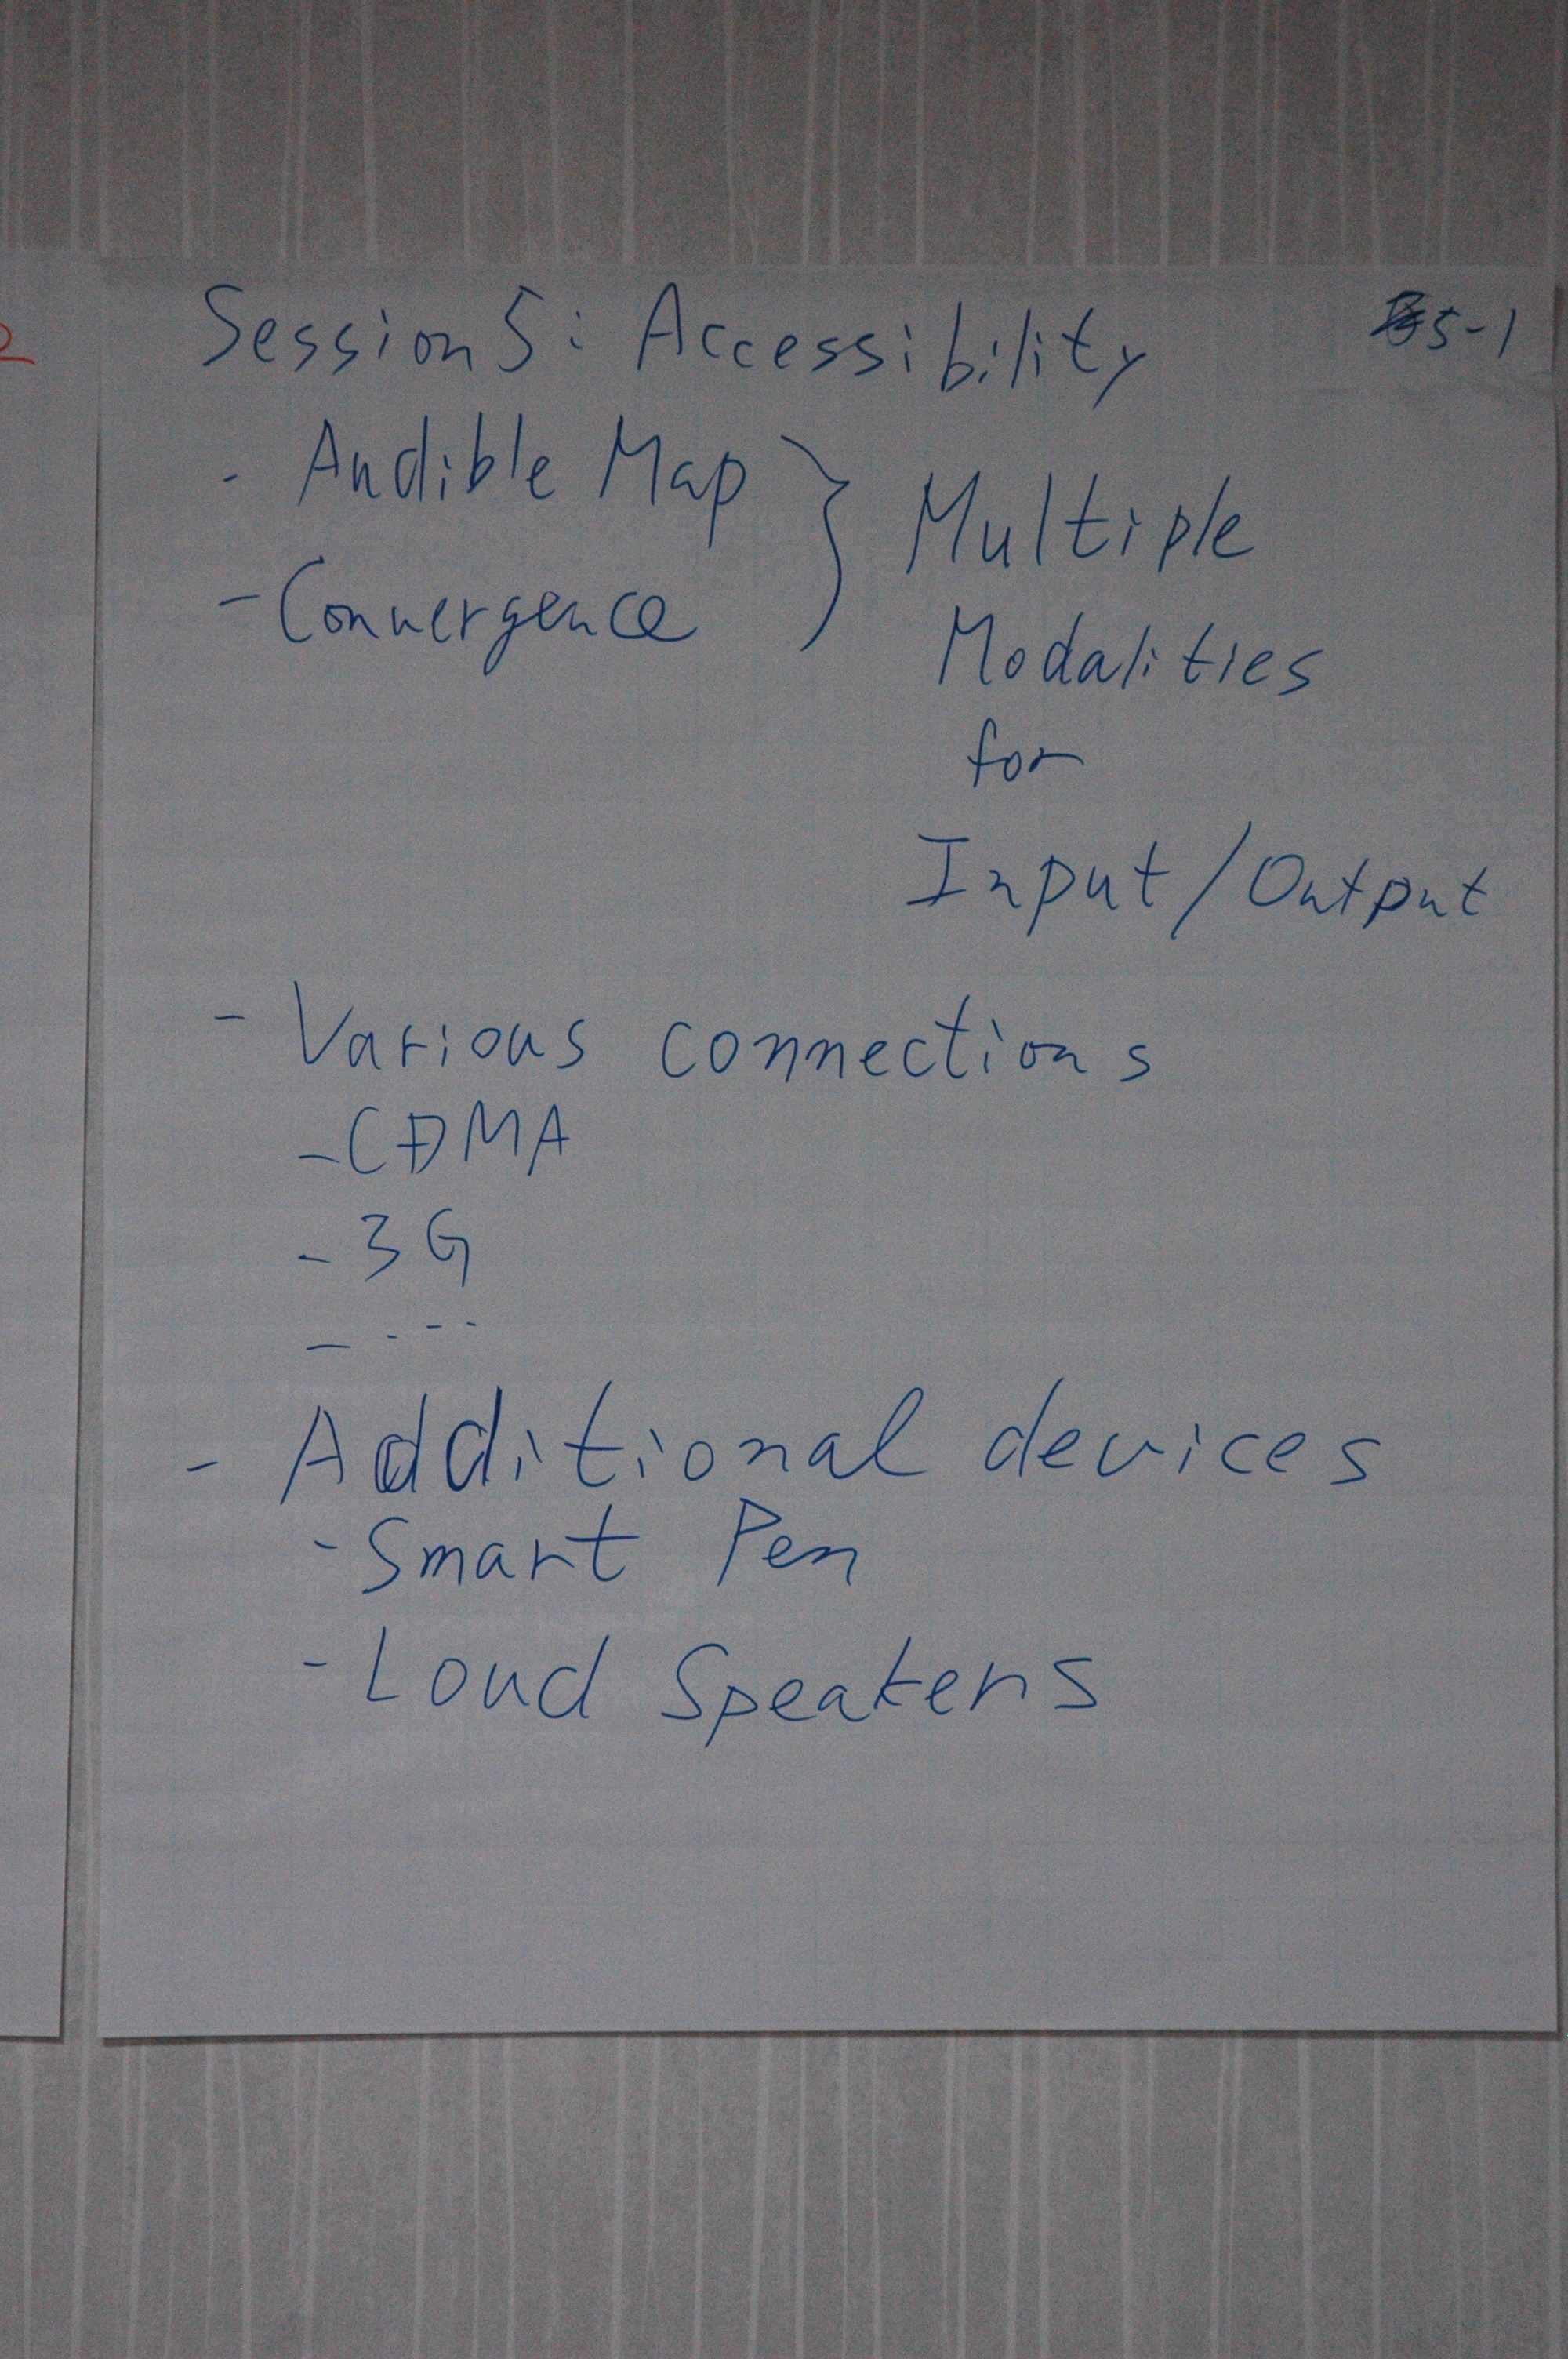 2
Session 5: Accessibility 5-1
- Audible Map } Multiple
- Convergence
Modalities
for
Input/Output
- Various connections
- CDMA
- 3G
- ...
- Additional devices
- Smart Pen
- Loud Speakers